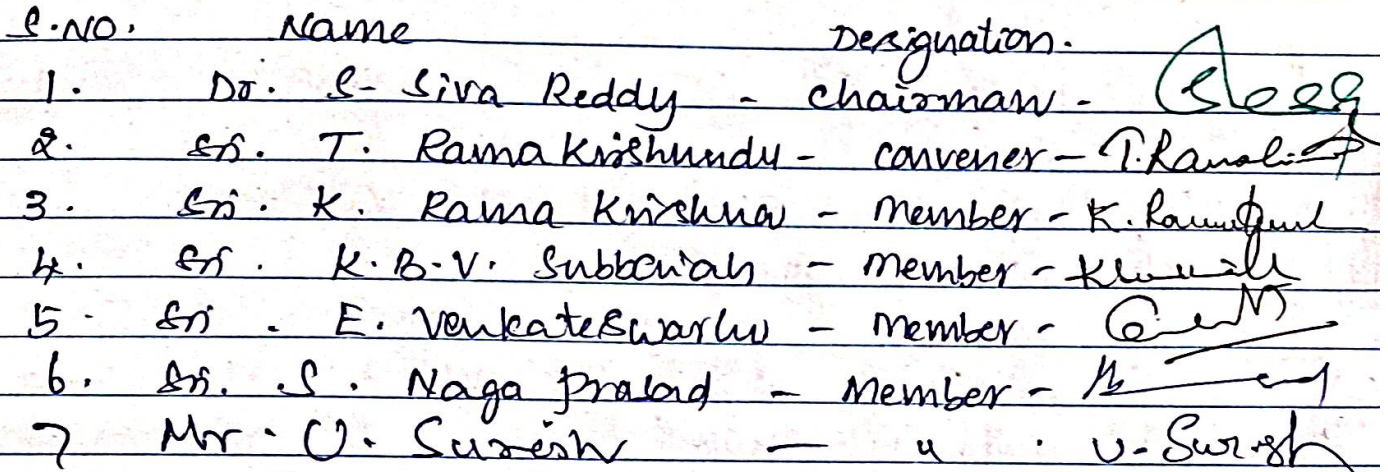 S.NO. Name Designation.
1. Dr. S- Siva Reddy - chairman -
2. Sri. T. Rama Krishnudu - convener - T.
3. Sri. K. Rama Krishna - member - K.
4. Sri. K.B.V. Subbaiah - member -
5. Sri. E. Venkateswarlu - member -
6. Sri. S. Naga Prasad - Member -
7 Mr. U. Suresh — " . U. Suresh